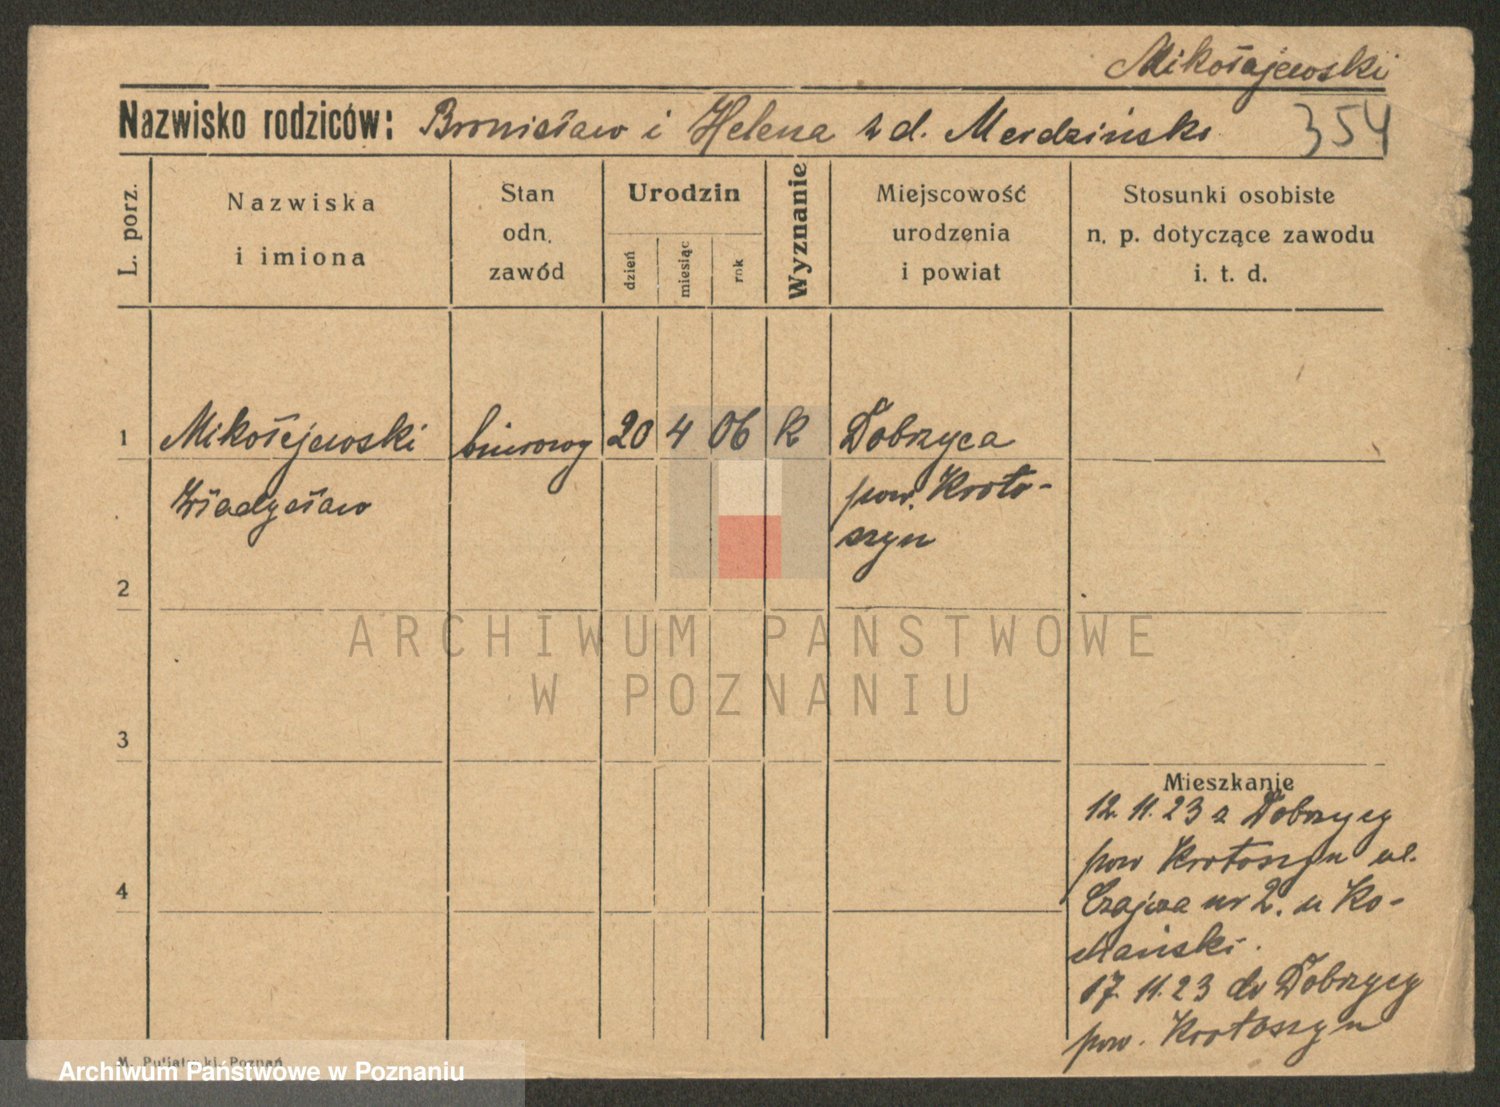 Mikołajewski
Nazwisko rodziców: Bronisław i Helena z d.
354
L. porz.
Nazwiska
i imiona
Stan
odn.
zawód
Urodzin
dzień
miesiąc
rok
Wyznanie
Miejscowość
urodzenia
i powiat
Stosunki osobiste
n. p. dotyczące zawodu
i. t. d.
1 Mikołejewski biurowy 20 4 06 k Dobrzyca
Władysław pow. Kroto-
szyn
2
ARCHIWUM PAŃSTWOWE
W POZNANIU
3
Mieszkanie
12. 11. 23 z Dobrzycy
pow Krotoszyn ul.
4
Czajcza nr 2. u
17. 11. 23 do Dobrzycy
pow. Krotoszyn
M. Putiatycki, Poznań
Archiwum Państwowe w Poznaniu